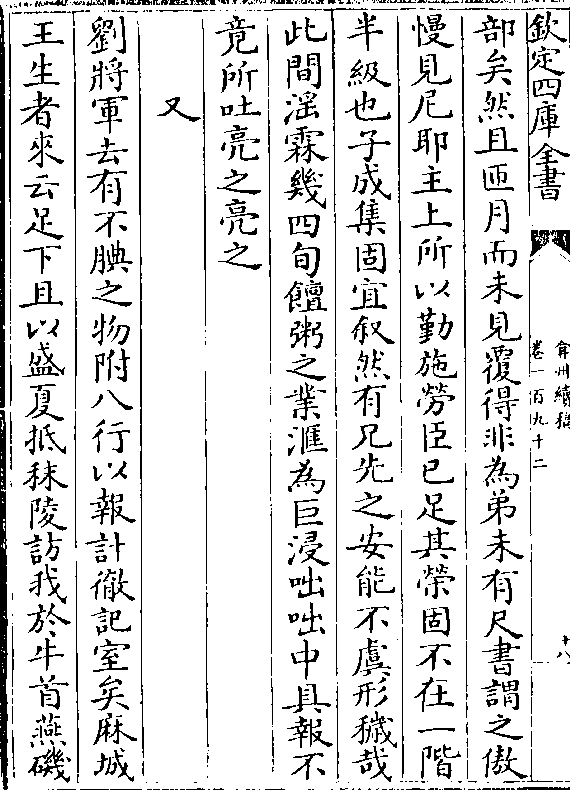 欽定四庫全書
弇州續稿
卷一百九十二
十八
部矣然且匝月而未見覆得非為弟未有尺書謂之傲
慢見尼耶主上所以勤施勞臣已足其榮固不在一階
半級也子成集固宜叙然有兄先之安能不虞形穢哉
此間滛霖幾四旬饘粥之業滙為巨浸咄咄中具報不
竟所吐亮之亮之
又
劉將軍去有不腆之物附八行以報計徹記室矣麻城
王生者來云足下且以盛夏抵秣陵訪我於牛首燕磯